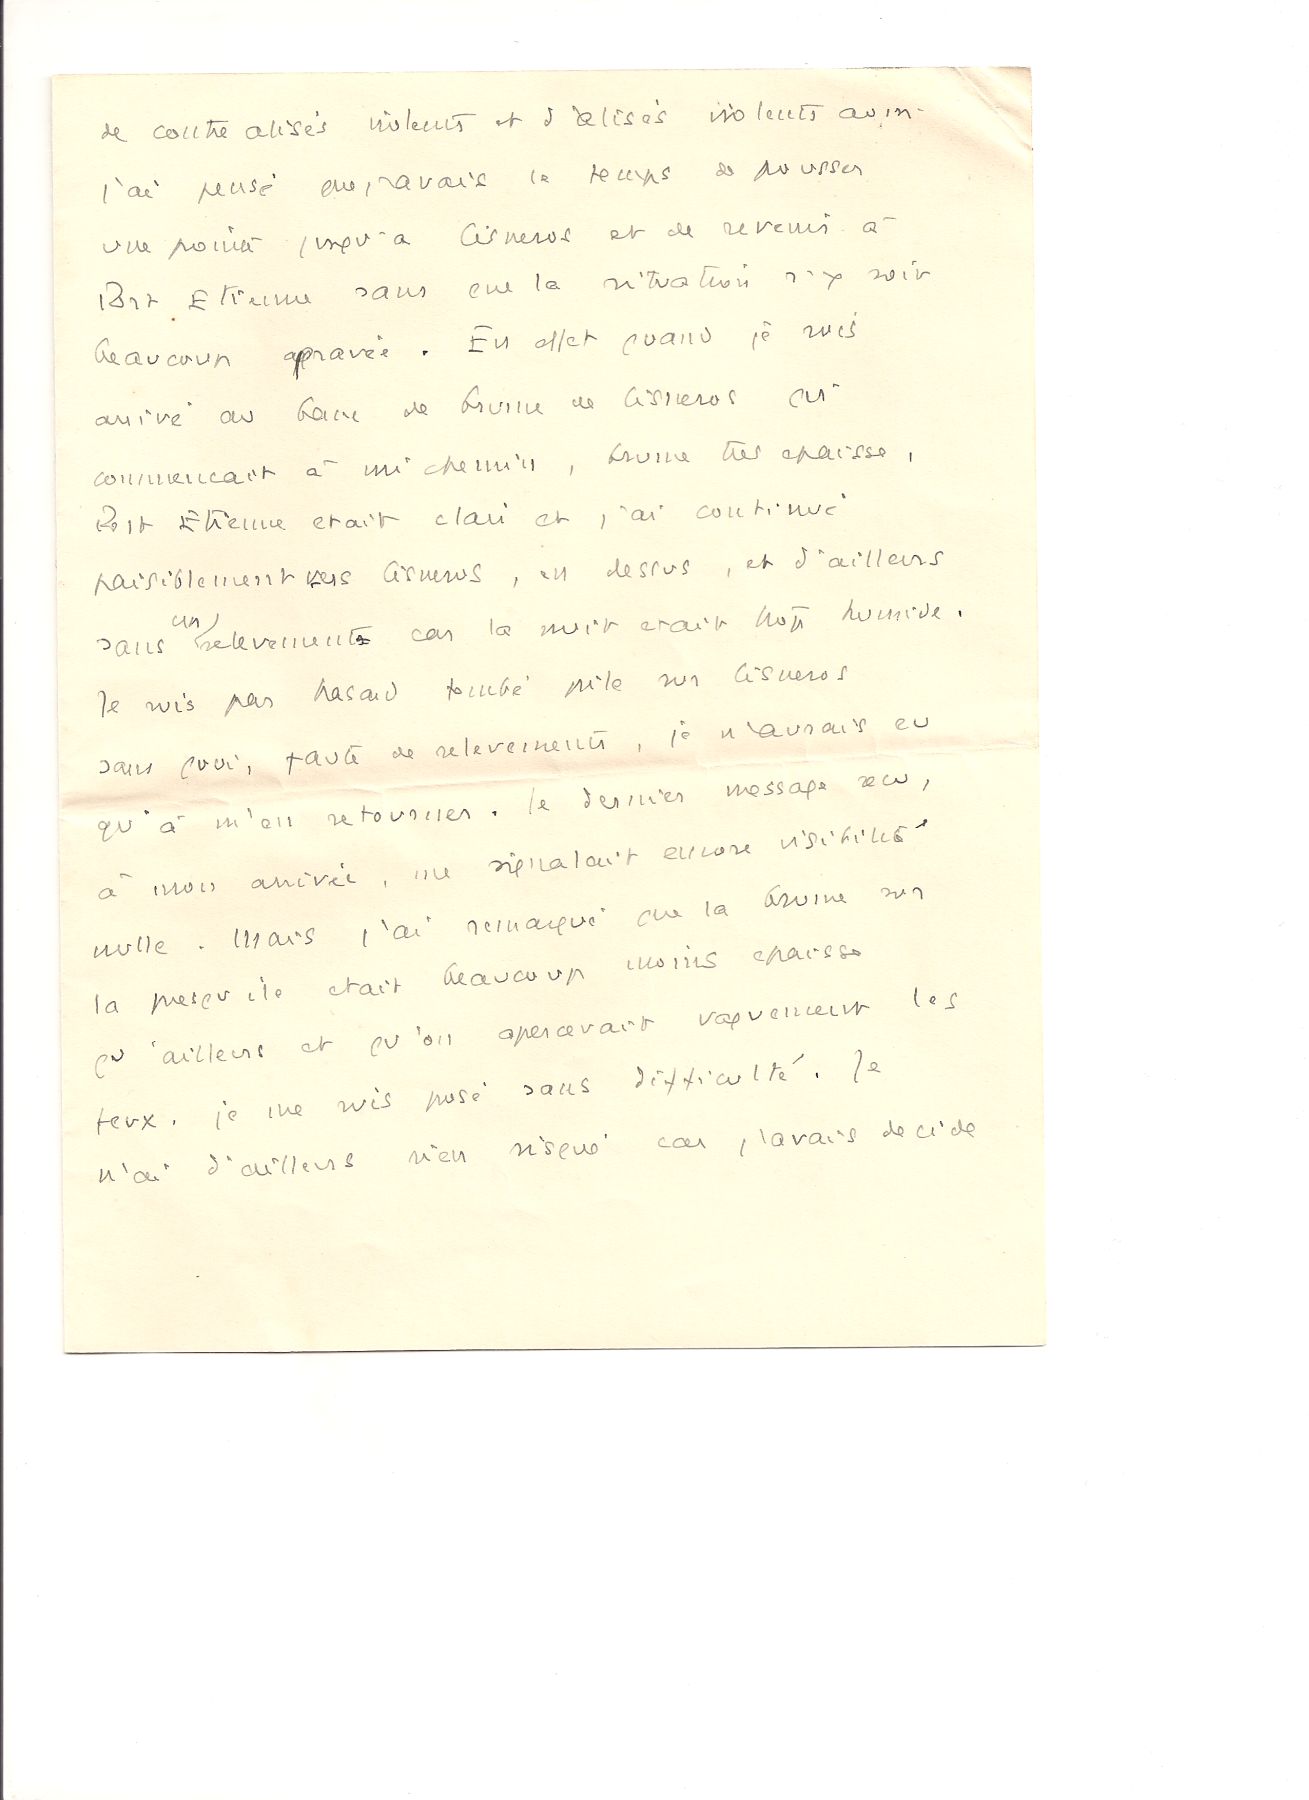 de contre alisés violents et d'alisés violents
j'ai pensé que j'avais le temps de pousser
une pointe jusqu'a Cisneros et de revenir à
Port Etienne sans que la situation s'y soit
beaucoup agravée. En effet quand je suis
arrivé au banc de brume de Cisneros qui
commencait à mi chemin, brume tres epaisse,
Port Etienne etait clair et j'ai continué
paisiblement vers Cisneros, en dessus, et d'ailleurs
sans un relevement car la nuit etait trop humide.
Je suis par hasard tombé pile sur Cisneros
sans quoi, faute de relevements, je n'aurais eu
qu'à m'en retourner. Le dernier message recu,
à mon arrivée, me signalait encore visibilité
nulle. Mais j'ai remarqué que la brume sur
la presqu'ile etait beaucoup moins epaisse
qu'ailleurs et qu'on apercevait vaguement les
feux. je me suis posé sans difficulté. Je
n'ai d'ailleurs rien risqué car j'avais decide